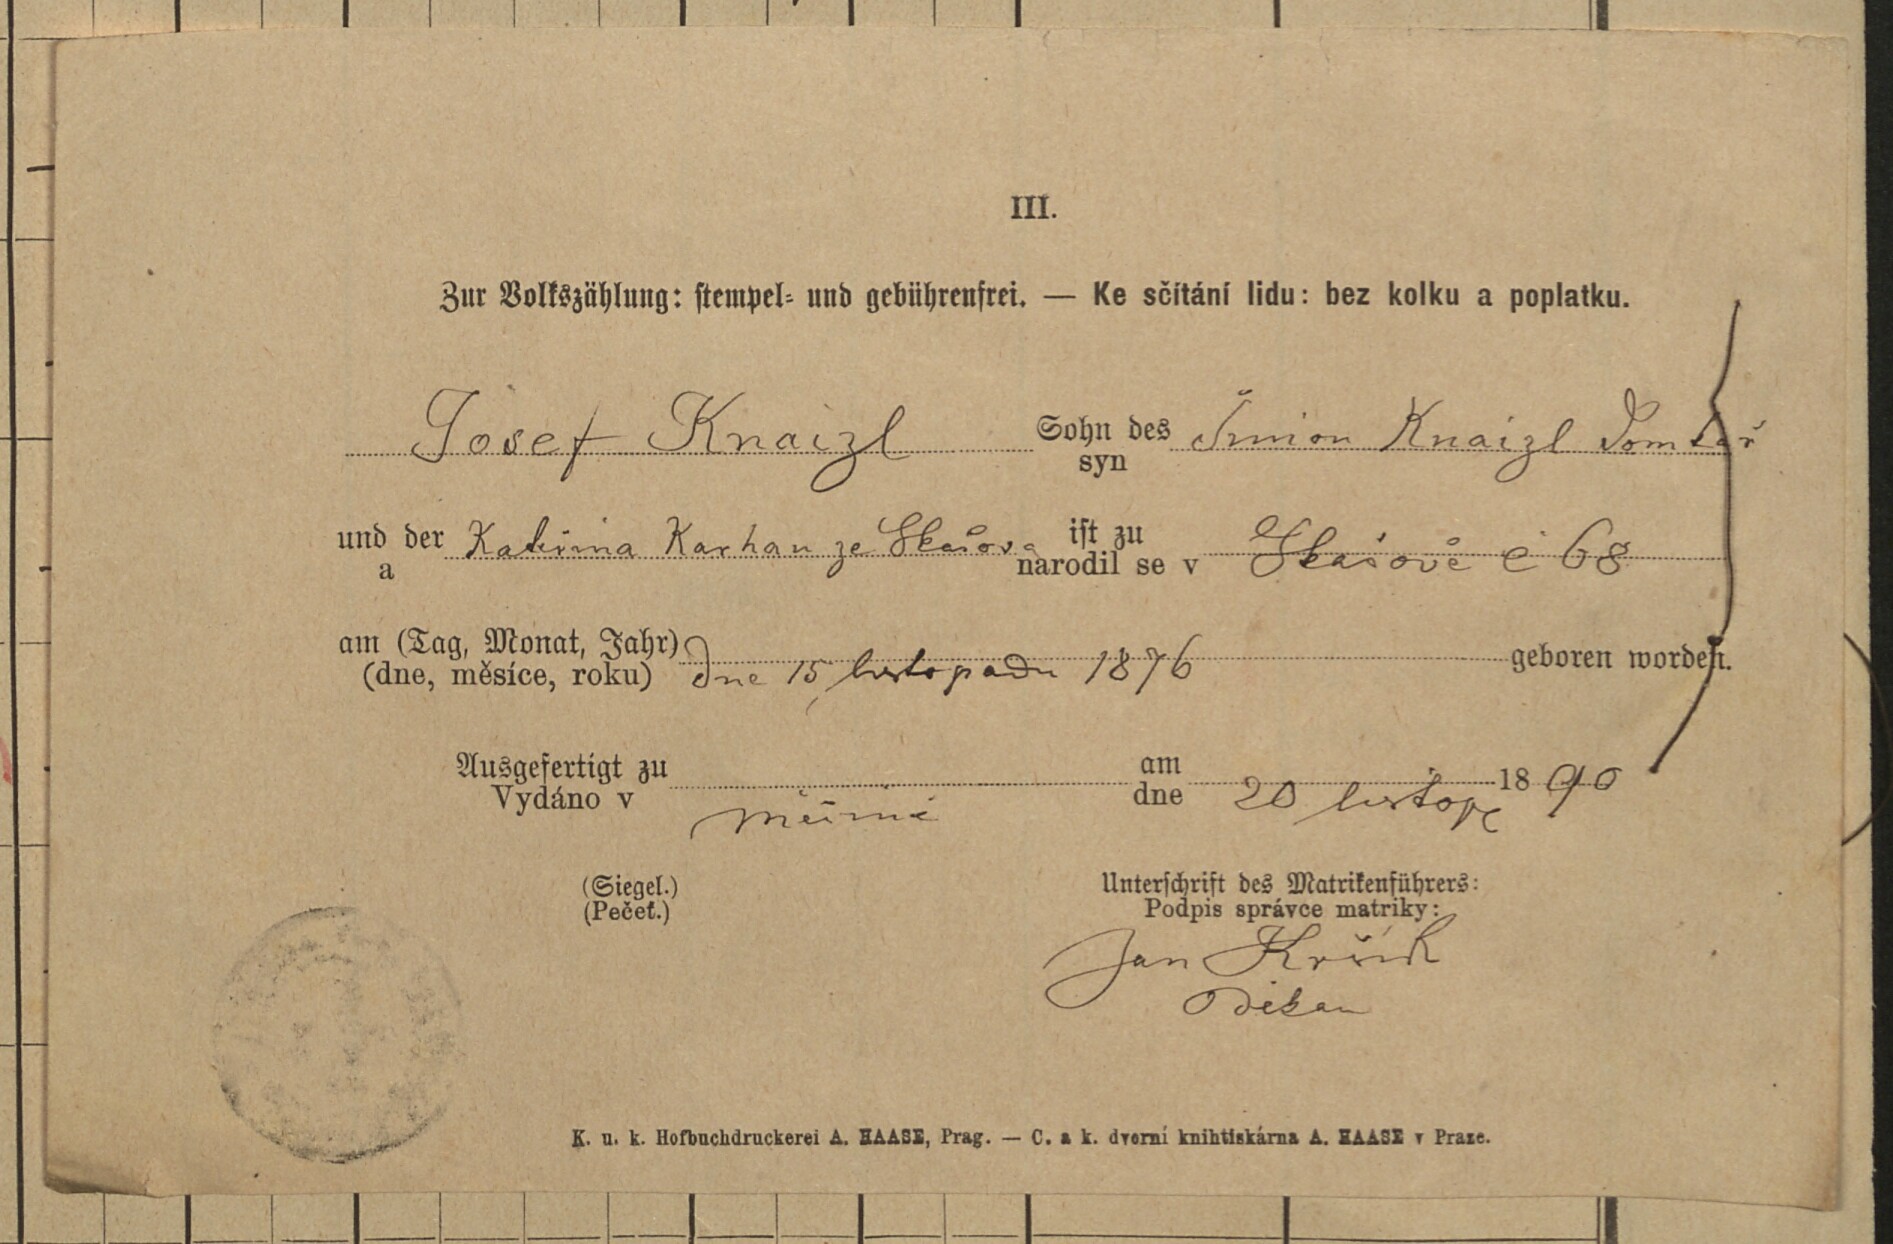 III.
Zur Volkszählung: stempel- und gebührenfrei. — Ke sčítání lidu: bez kolku a poplatku.
Josef Knaizl Sohn des Šimon Knaizl
syn
und der Kateřina Karhan ze Skašova ist zu Skašově č 68
a narodil se v
am (Tag, Monat, Jahr) geboren worden.
(dne, měsíce, roku) Dne 15 listopadu 1876
Ausgefertigt zu am 18 90
Vydáno v dne 20 listop
Měčíně
(Siegel.) Unterschrift des Matrikenführers:
(Pečeť.) Podpis správce matriky:
Jan
Děkan
K. u. k. Hofbuchdruckerei A. HAASE, Prag. — C. a k. dvorní knihtiskárna A. HAASE v Praze.